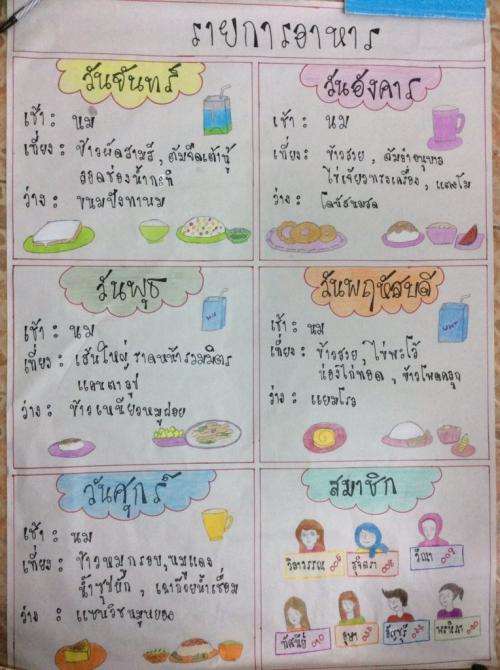 รายการอาหาร
วันจันทร์
เช้า : นม
เที่ยง : ข้าวผัดสามสี, ต้มจืดเต้าหู้
ลอดช่องน้ำกะทิ
ว่าง : ขนมปังทานม
วันอังคาร
เช้า : นม
เที่ยง : ข้าวสวย, ส้มตำอนุบาล
ไข่เจียวทรงเครื่อง, แตงโม
ว่าง : โดนัทนมสด
วันพุธ
เช้า : นม
เที่ยง : เส้นใหญ่ราดหน้ารวมมิตร
แคนตาลูป
ว่าง : ข้าวเหนียวหมูฝอย
วันพฤหัสบดี
เช้า : นม
เที่ยง : ข้าวสวย, ไข่พะโล้
น่องไก่ทอด, ข้าวโพดคลุก
ว่าง : แยมโรล
วันศุกร์
เช้า : นม
เที่ยง : ข้าวหมูกรอบ, หมูแดง
น้ำซุปผัก, เฉาก๊วยน้ำเชื่อม
ว่าง : แซนวิชหมูหยอง
สมาชิก
วิลาวรรณ 005
สุจิตรา 008
วีณา 009
ทัศนีย์
อุษา
พรทิภา